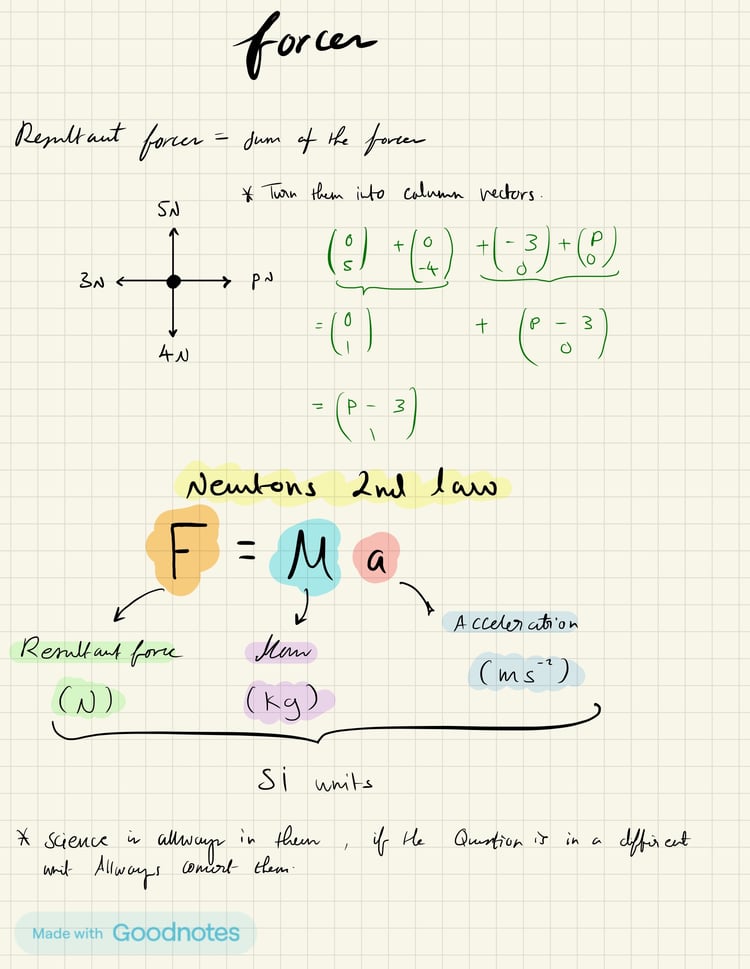 forces
Resultant forces = sum of the forces
* Turn them into column vectors.
5N
3N
PN
4N
(0 5) + (0 -4) + (-3 0) + (P 0)
= (0 1) + (P - 3 0)
= (P - 3 1)
Newtons 2nd law
F = M a
Resultant force
Mass
Acceleration
(N)
(kg)
(ms⁻²)
Si units
* Science is allways in them, if the Question is in a different
unit Allways convert them.
Made with Goodnotes